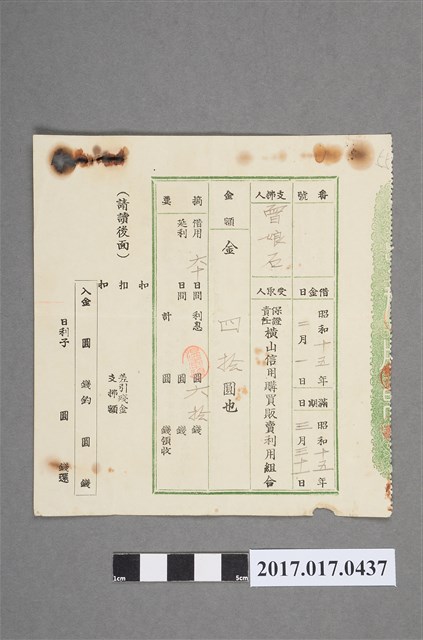 番號
借金日 昭和十三年二月一日
滿期 昭和十五年三月三十一日
支拂人 曾娘石
受取人 保證責任橫山信用購買販賣利用組合
金額 金 四拾圓也
摘要 借用 六十日間 利息 圓六拾錢
延利 日間 圓 錢
計 圓 錢領收
(請讀後面)
扣 扣 扣
差引殘金
支拂額
入金 圓 錢 約 圓 錢
日利子 圓 錢還
1cm
5cm
2017.017.0437